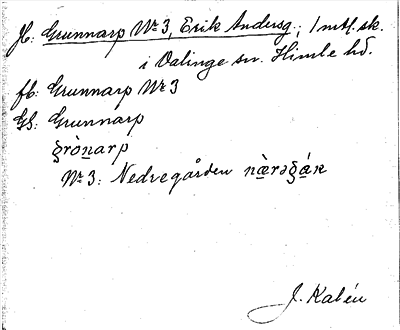 Jb: Grunnarp Nr 3, Erik Andersg.; 1 mtl. sk.
i Valinge sn. Himle hd.
fb: Grunnarp Nr 3
GS: Grunnarp
gròn̲arp
Nr 3: Nedregården
J. Kalén